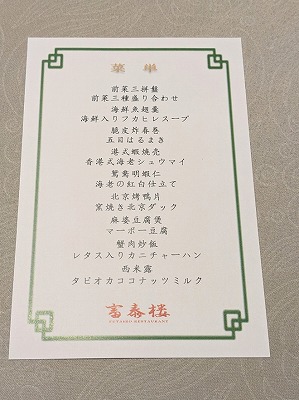 菜單
前菜三拼盤
前菜三種盛り合わせ
海鮮魚翅羹
海鮮入りフカヒレスープ
脆皮炸春巻
五目はるまき
港式蝦燒売
香港式海老シュウマイ
鴛鴦明蝦仁
海老の紅白仕立て
北京烤鴨片
窯焼き北京ダック
麻婆豆腐煲
マーボー豆腐
蟹肉炒飯
レタス入りカニチャーハン
西米露
タピオカココナッツミルク
富泰楼